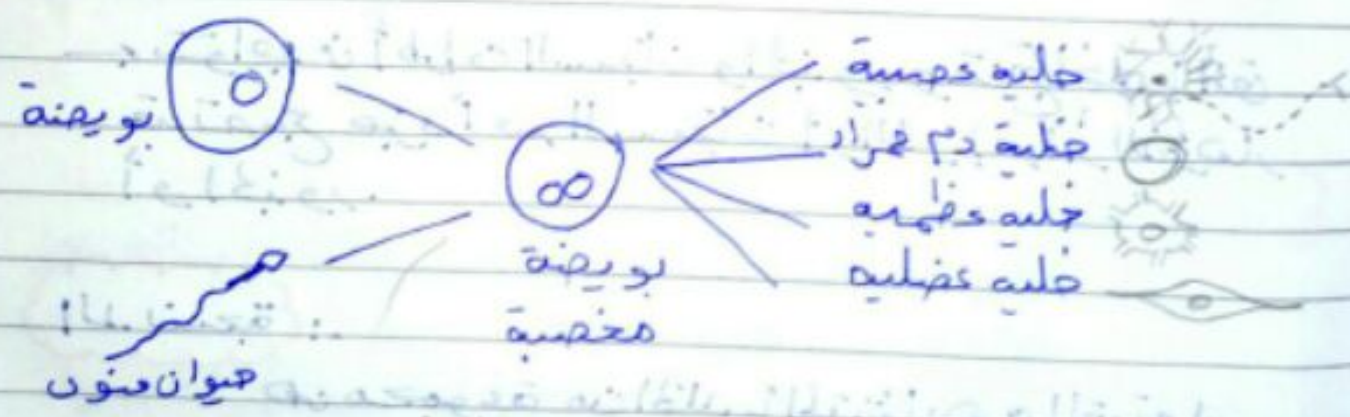 بويضة
حيوان منوي
بويضة
مخصبة
خليه عصبية
خلية دم حمراء
خليه عظميه
خليه عضليه